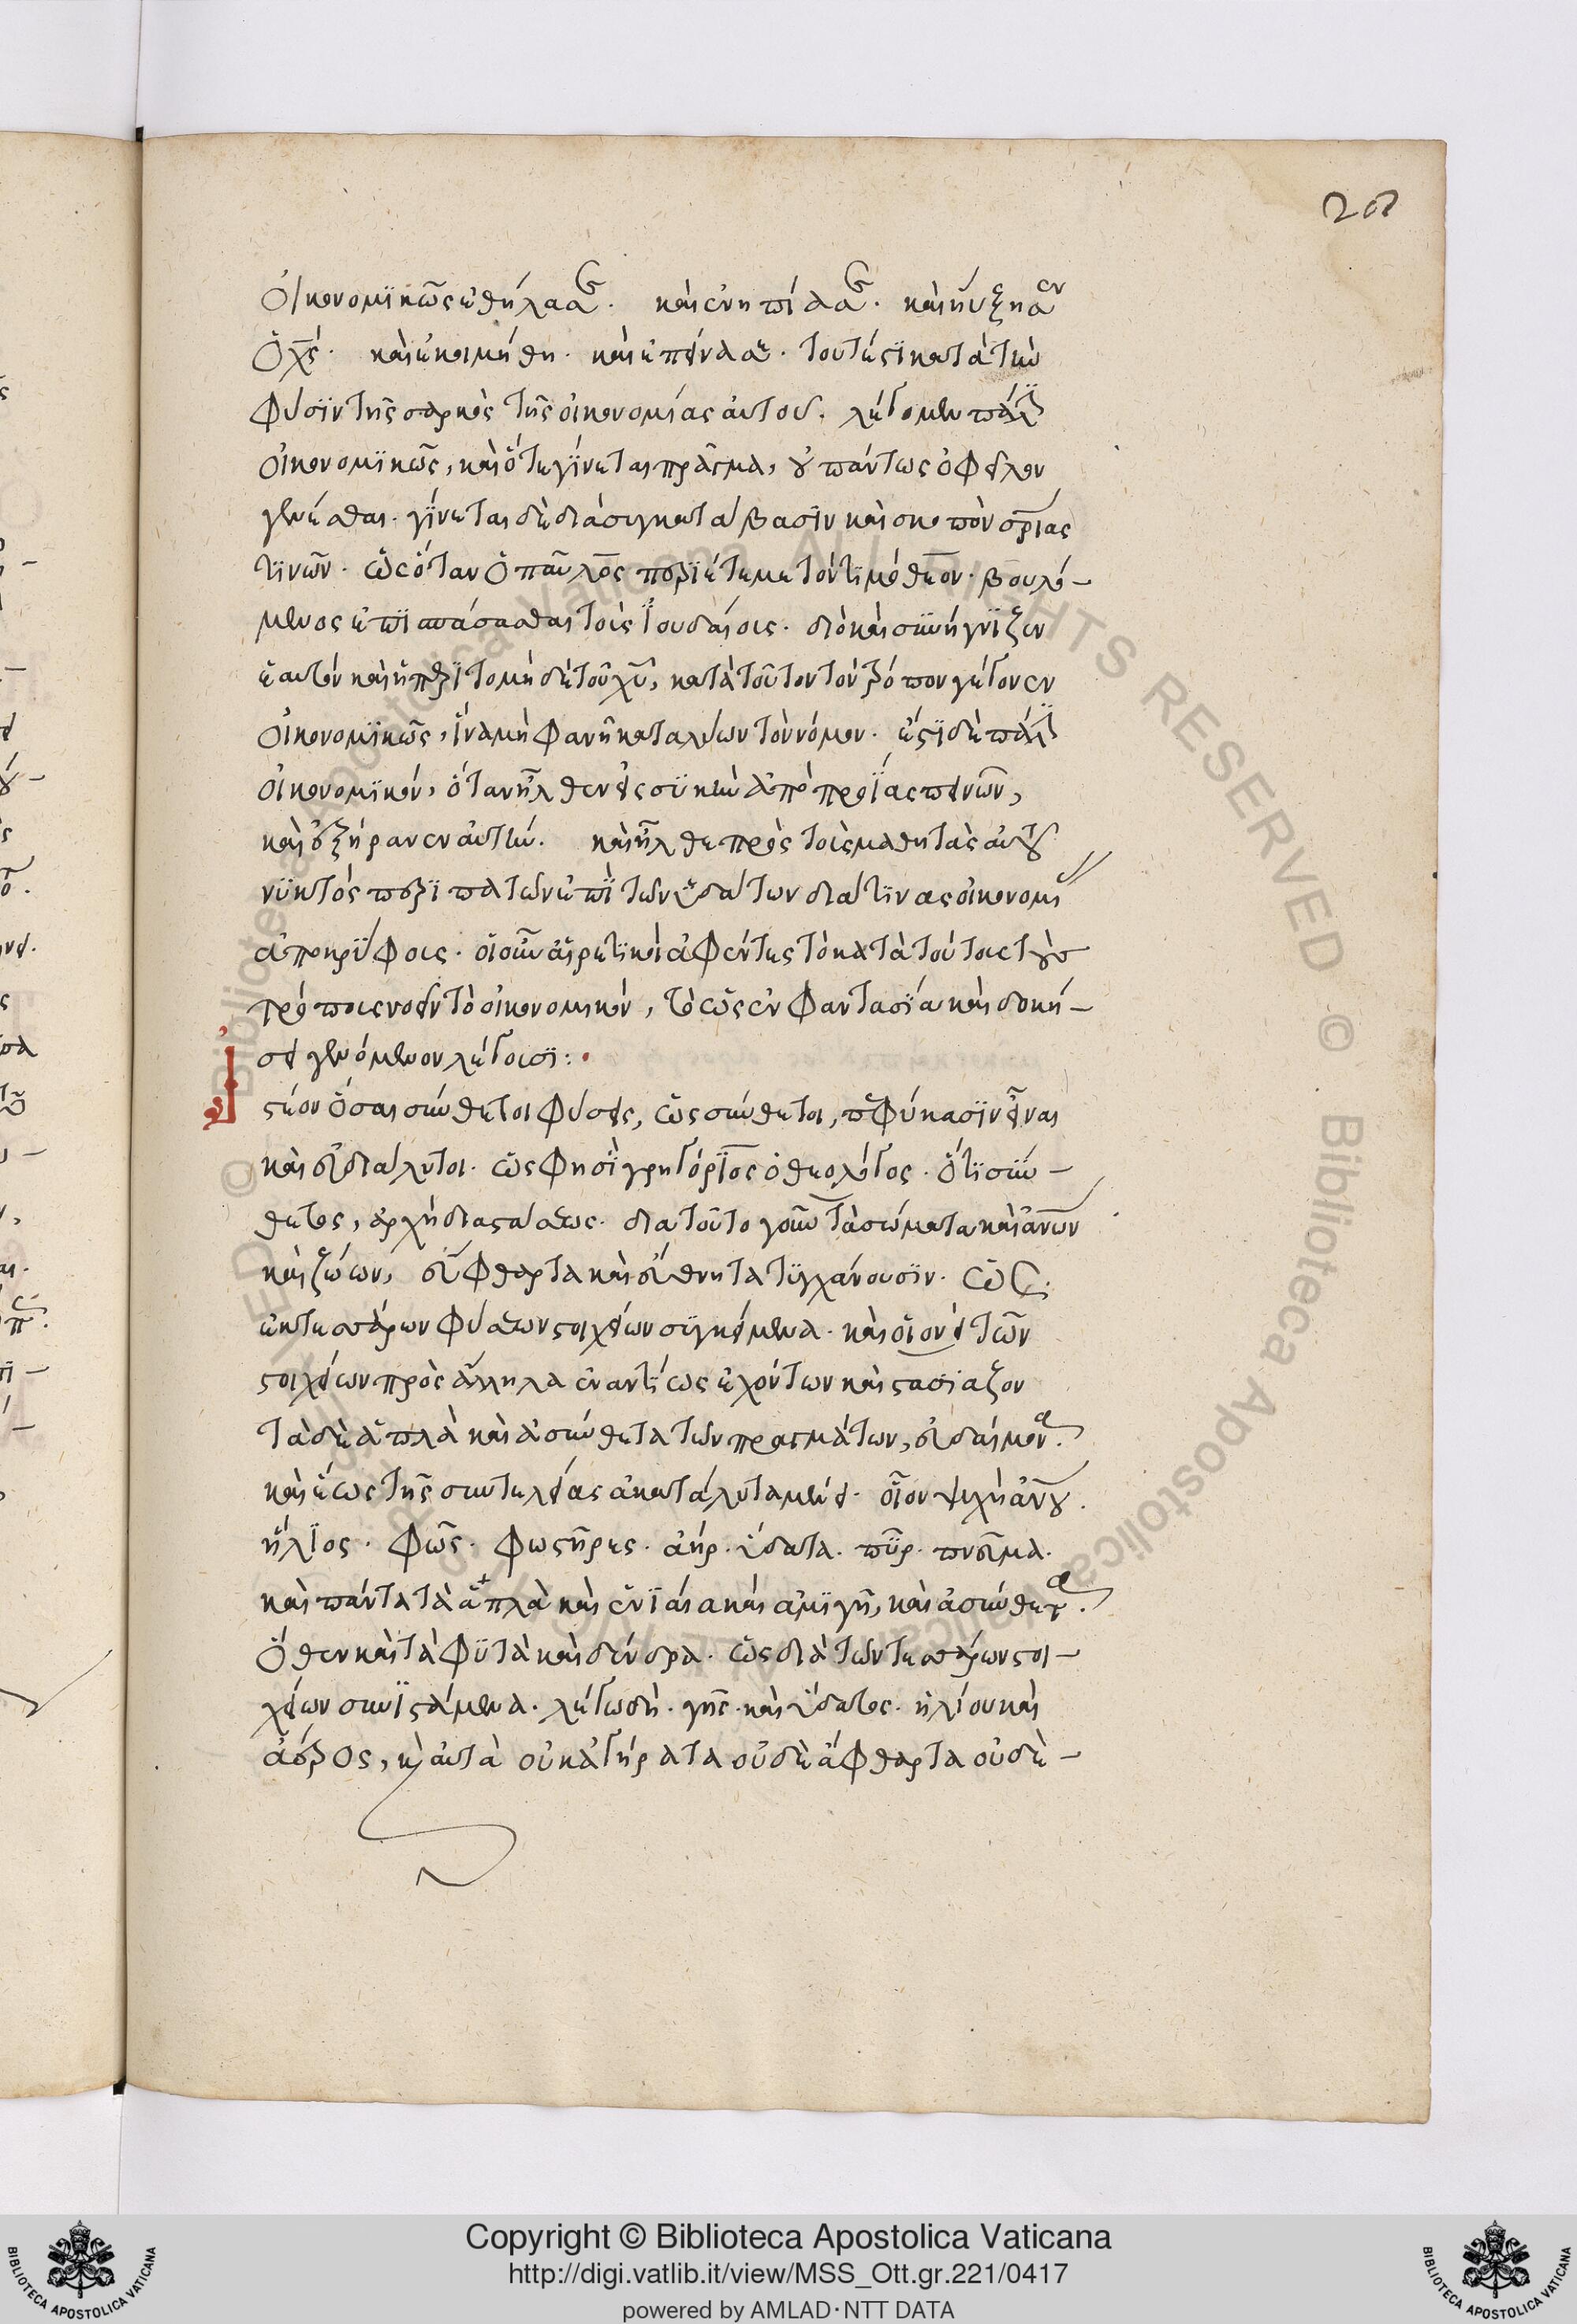 201
οἰκονομϊκῶς ἐθήλασεν. καὶ ἐνηπίασεν. καὶ ηὔξησεν
ὁ χς. καὶ ἐκοιμήθη. καὶ ἐπείνασε. τουτέστϊ κατὰ τὴν
φύσϊν τῆς σαρκὸς τῆς οἰκονομίας αὐτοῦ. λέγομεν πάλϊν
οἰκονομϊκῶς, καὶ ὅτε γϊνεται πρᾶγμα, οὐ πάντως ὀφεῖλον
γενέσθαι. γϊνεται δὲ διὰ συγκατάβασϊν καὶ σκοπὸν σρίας
τϊνῶν. ὡς ὅταν ὁ παῦλος περϊέτεμε τὸν τϊμόθεον. βουλό-
μενος ἐπϊσπάσασθαι τοὺς ἰουδαίους. διὸ καὶ συνήγνϊζεν
ἑαυτόν καὶ ἡ περϊτομὴ δὲ τοῦ χυ, κατὰ τοῦτον τὸν τρόπον γέγονεν
οἰκονομϊκῶς, ἵνα μὴ φανῆ καταλύων τὸν νόμον. ἔστϊ δὲ πάλϊν
οἰκονομϊκόν, ὅταν ἦλθεν εἰς συκὴν ἀπὸ πρωΐας πεινῶν,
καὶ ἐξήρανεν αὐτήν. καὶ ἦλθε πρὸς τοὺς μαθητὰς αὐτοῦ
νϋκτὸς περϊπατῶν ἐπϊ τῶν ὑδάτων διά τϊνας οἰκονομίας
ἀποκρϋφους. οἱ οὖν αἱρετϊκοὶ ἀφέντες τὸ κατὰ τούτους τοὺς
τρόπους νοεῖν τὸ οἰκονομικόν, τὸ ὡς ἐν φαντασϊα καὶ δοκή-
σει γενόμενον λέγουσϊ:
Ἰστέον ὅσαι σύνθετοι φύσεις, ὡς σύνθετοι, πεφύκασϊν εἶναι
καὶ εὐδιάλυτοι. ὡς φησϊ γρηγόρϊος ὁ θεολόγος. ὅτϊ σύν-
θετος, ἀρχὴ διαστάσεως. διὰ τοῦτο γοῦν τὰ σώματα καὶ ἀνων
καὶ ζώων, εὔφθαρτα καὶ εὔθνητα τϋγχάνουσϊν. ὡς
ἐκ τεσσάρων φύσεων στοιχείων συγκείμενα. καὶ οἷονεὶ τῶν
στοιχείων πρὸς ἄλληλα ἐναντϊως ἐχόντων καὶ στασϊαζον
τὰ δὲ ἁπλὰ καὶ ἀσύνθετα τῶν πραγμάτων, εὐδαίμονα.
καὶ ἕως τῆς συντελείας ἀκατάλυτα μένει. οἷον ψυχὴ ἀνου.
ἥλϊος. φῶς. φωστῆρες. ἀήρ. ὕδατα. πῦρ. πνεῦμα.
καὶ πάντα τὰ ἁπλὰ καὶ ἑνϊαία καὶ ἀμϊγῆ, καὶ ἀσύνθετα.
ὅθεν καὶ τὰ φϋτὰ καὶ δένδρα. ὡς διὰ τῶν τεσσάρων στοι-
χείων συνϊστάμενα. λέγω δὴ. γῆς. καὶ ὕδατος. ἡλίου καὶ
ἀέρος, κ αὐτὰ οὐκ ἀγήρατα οὐδὲ ἄφθαρτα οὐδὲ-
Copyright © Biblioteca Apostolica Vaticana
http://digi.vatlib.it/view/MSS_Ott.gr.221/0417
powered by AMLAD·NTT DATA